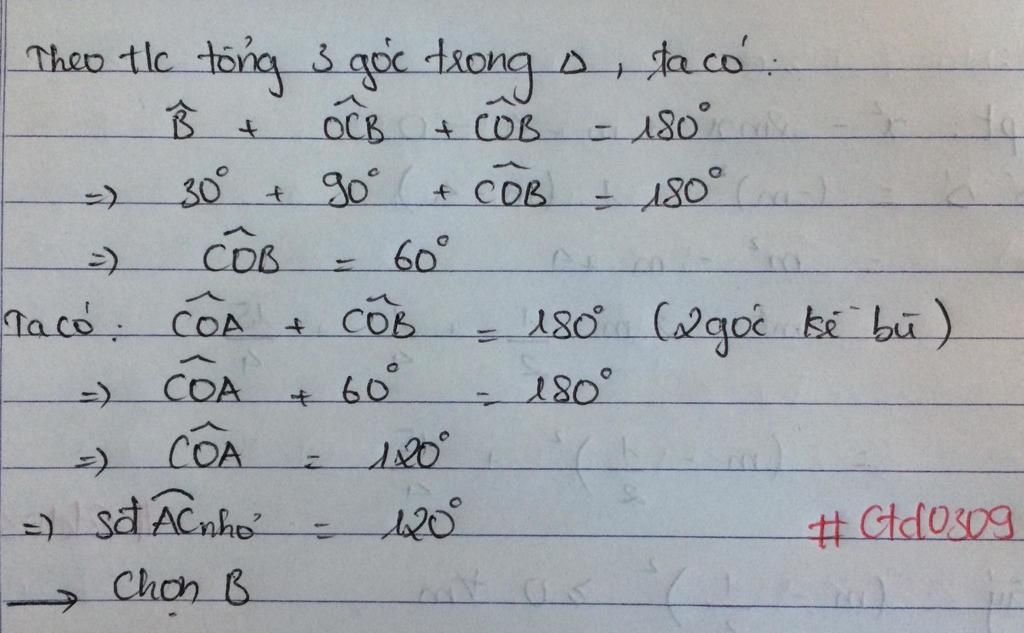 Theo t/c tổng 3 góc trong Δ, ta có:
B̂ + OĈB + CÔB = 180°
=) 30° + 90° + CÔB = 180°
=) CÔB = 60°
Ta có: CÔA + CÔB = 180° (2 góc kề bù)
=) CÔA + 60° = 180°
=) CÔA = 120°
=) sđ AC nhỏ = 120°
# Ctd0309
→ Chọn B